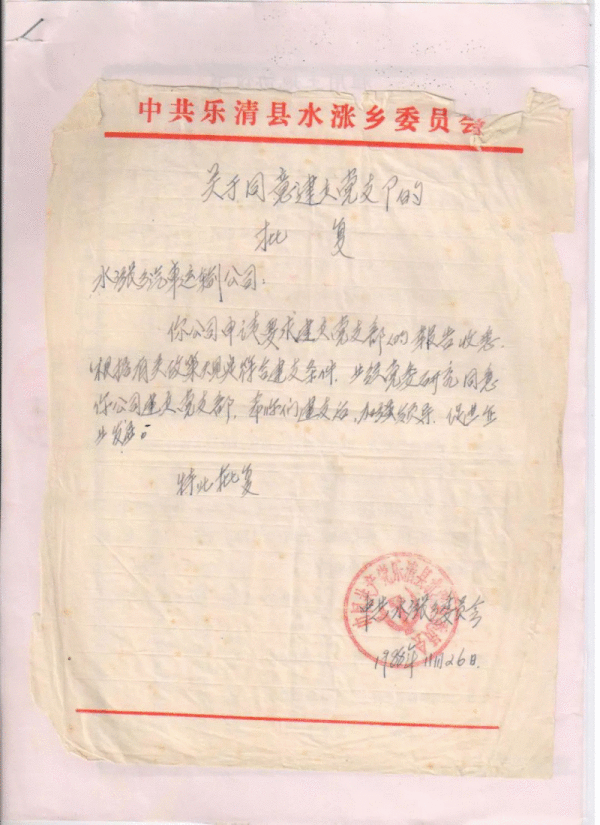 中共乐清县水涨乡委员会
关于同意建立党支卩的
批 复
水涨乡汽车运输公司：
你公司申请要求建立党支部的报告收悉.
根据有关政策规定符合建支条件，业经党委研究同意
你公司建立党支部，希你们建支后，加强领导，促进企
业发展。
特此批复
中共水涨乡委员会
11月26日.